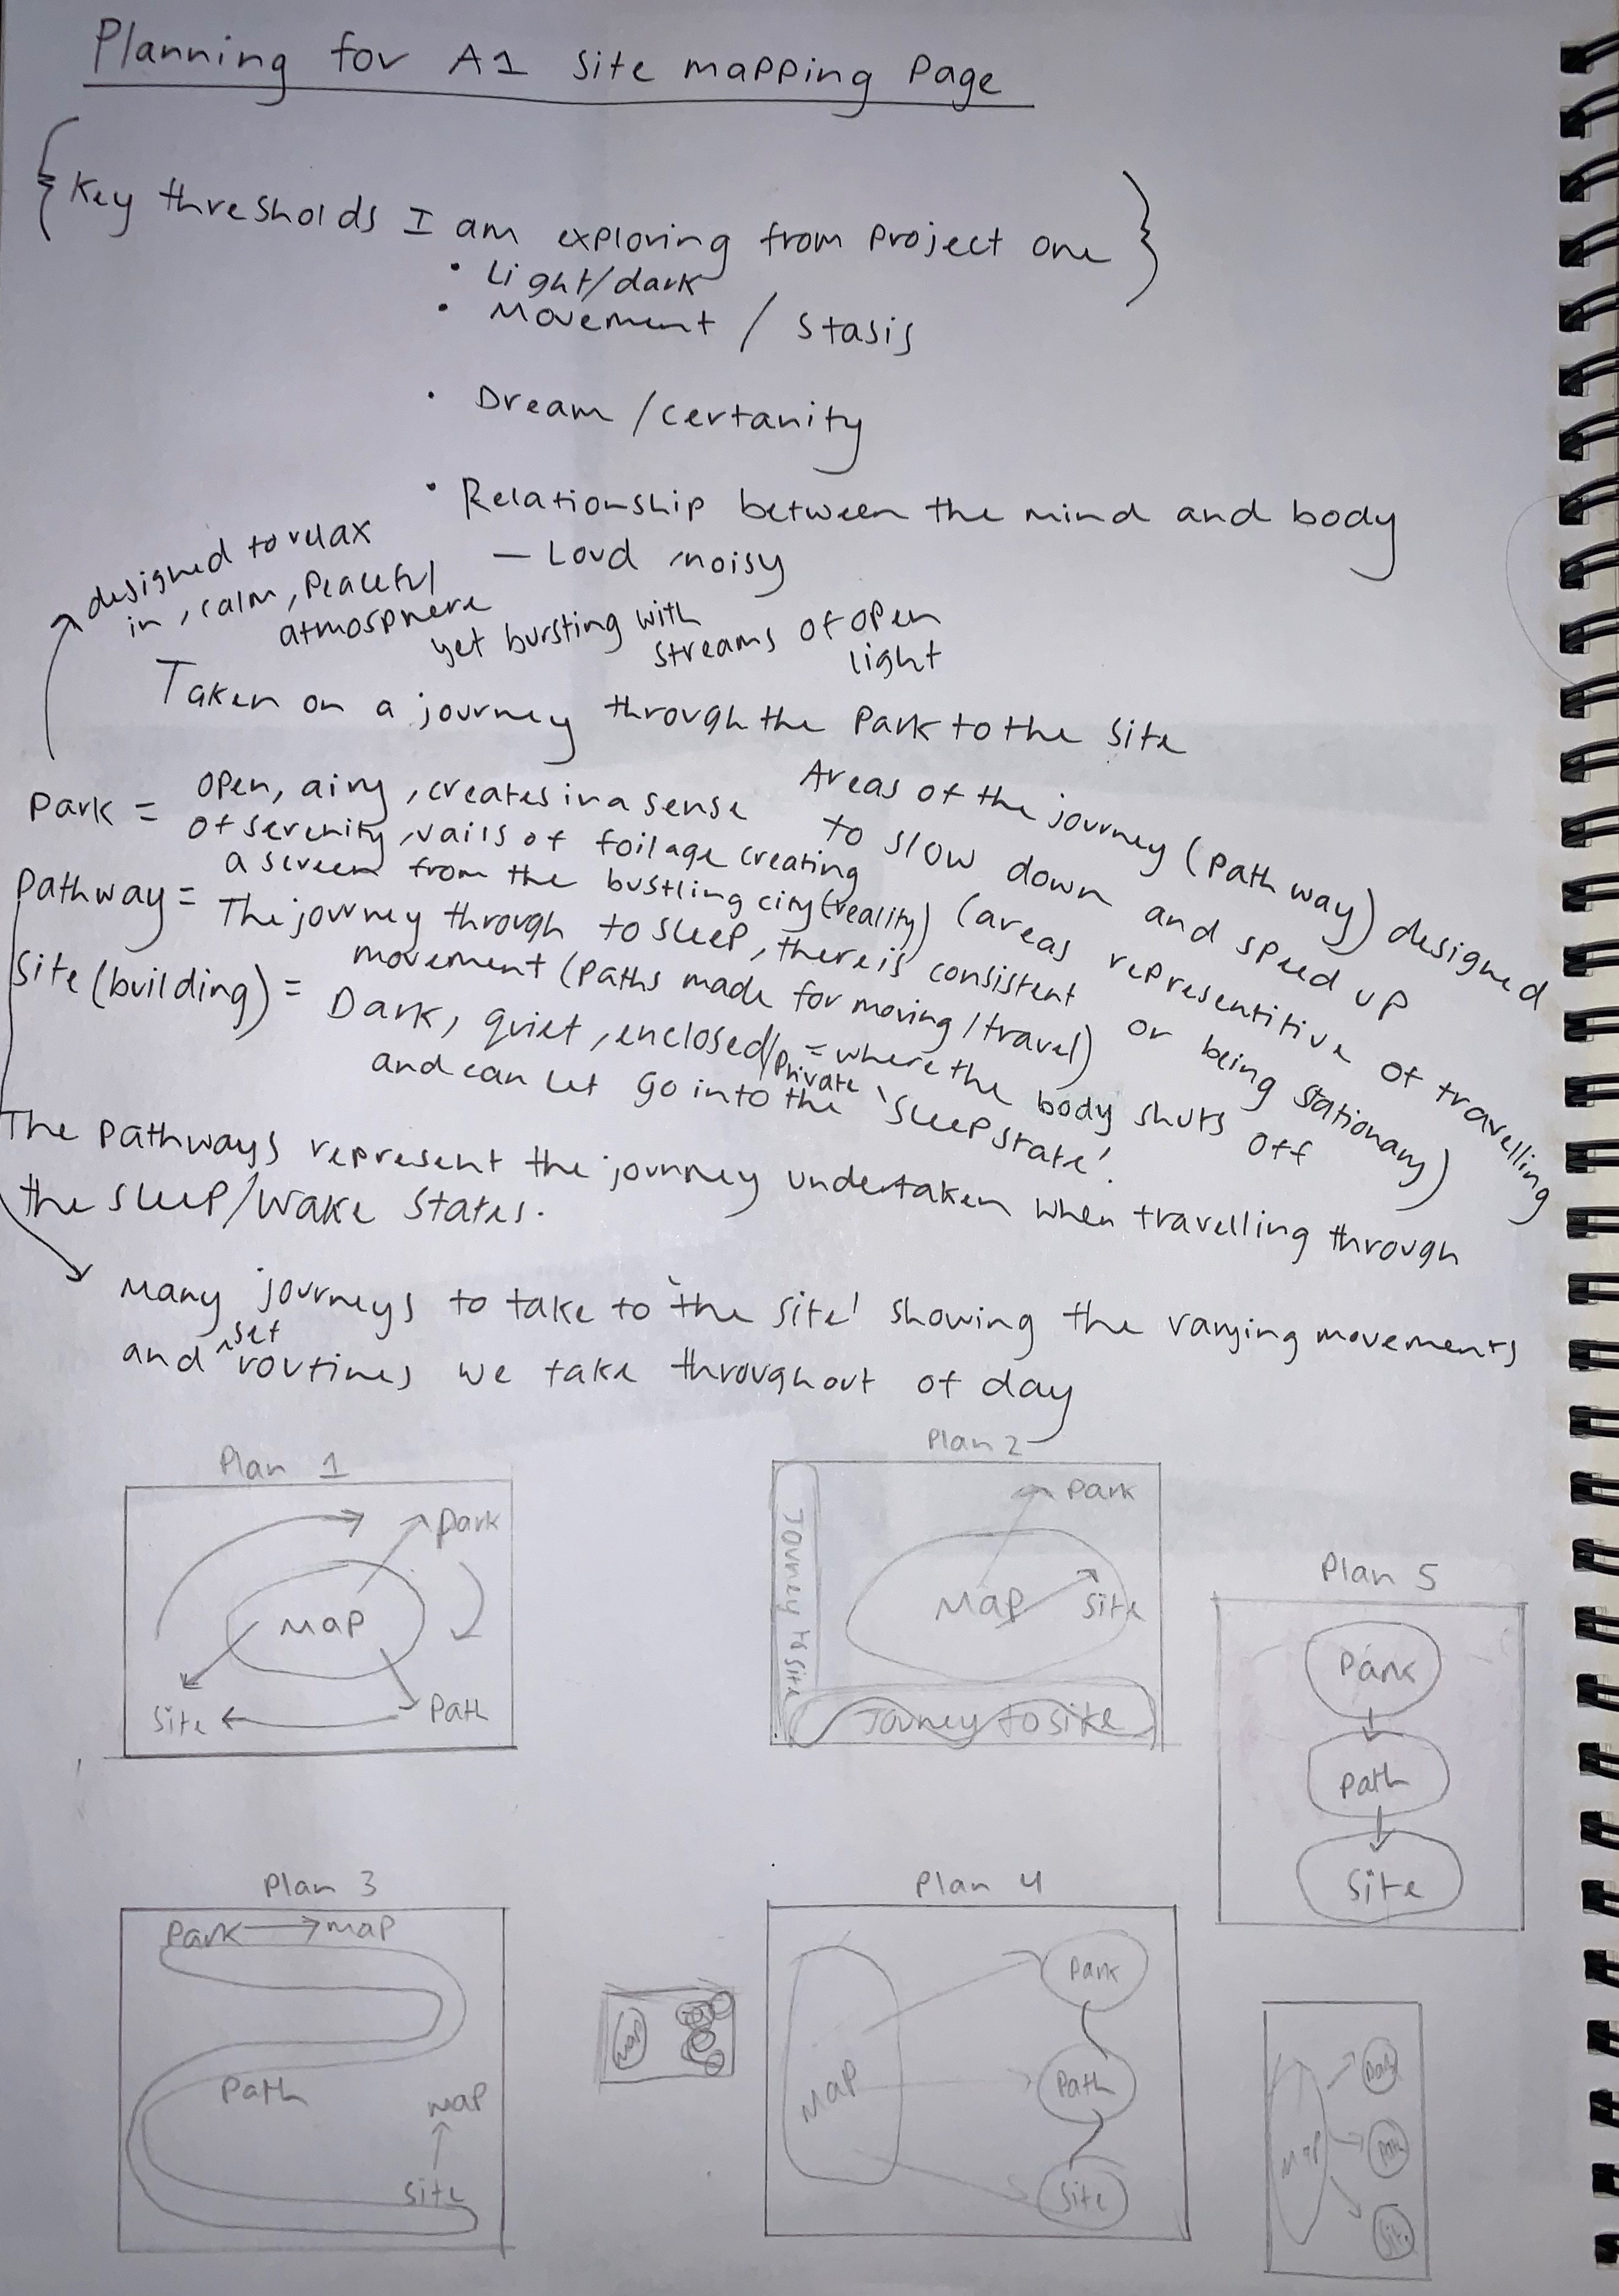 Planning for A1 site mapping page
Key thresholds I am exploring from project one
• Light/dark
• Movement / Stasis
• Dream / certanity
• Relationship between the mind and body
— Loud noisy
designed to relax
in, calm, peaceful
atmosphere
yet bursting with
streams of open
light
Taken on a journey through the park to the site
Park = open, airy, creates in a sense
of serenity, vails of foilage creating
a screen from the bustling city (reality)
Pathway = The journey through to sleep, there is consistent
movement (paths made for moving / travel)
Site (building) = Dark, quiet, enclosed/private = where the body shuts off
and can let go into the 'sleep state'.
Areas of the journey (pathway) designed
to slow down and speed up
(areas representitive of travelling
or being stationary)
The pathways represent the journey undertaken when travelling through
the sleep/wake states.
Many journeys to take to 'the site' showing the varying movements
and set routines we take throughout of day
Plan 1
Park
Map
Path
Site
Plan 2
Park
Map
Site
Journey to site
Journey to site
Plan 5
Park
Path
Site
Plan 3
Park → map
Path
map
Site
Map
Plan 4
Map
Park
Path
Site
Map
Park
Path
Site